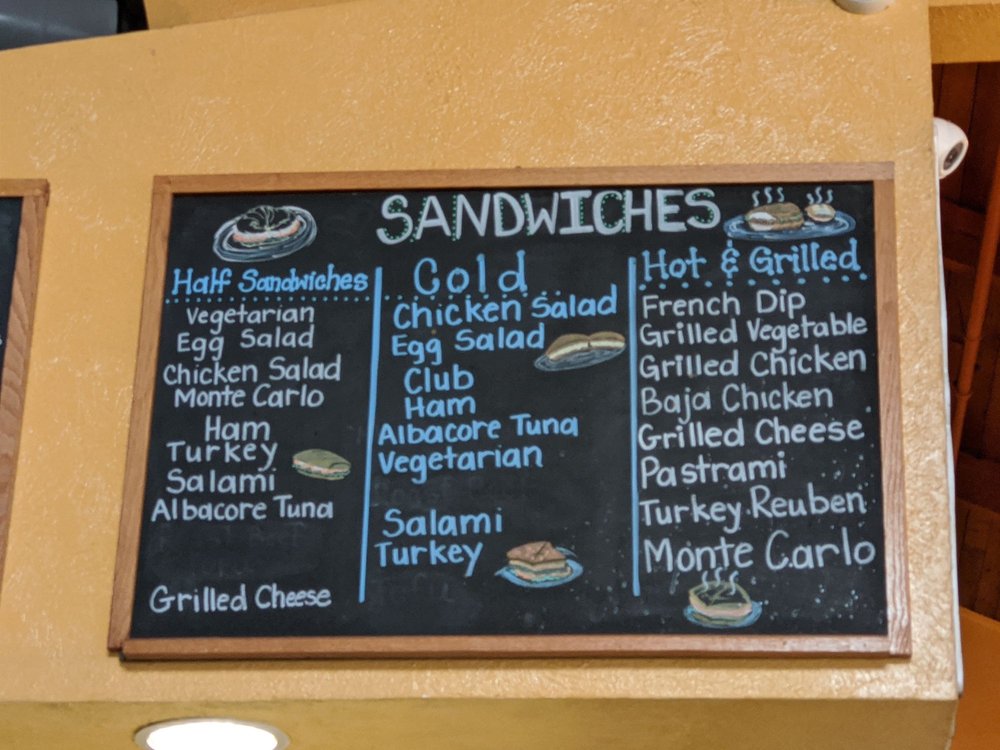 SANDWICHES
Half Sandwiches
Vegetarian
Egg Salad
Chicken Salad
Monte Carlo
Ham
Turkey
Salami
Albacore Tuna
Grilled Cheese
Cold
Chicken Salad
Egg Salad
Club
Ham
Albacore Tuna
Vegetarian
Salami
Turkey
Hot & Grilled
French Dip
Grilled Vegetable
Grilled Chicken
Baja Chicken
Grilled Cheese
Pastrami
Turkey Reuben
Monte Carlo